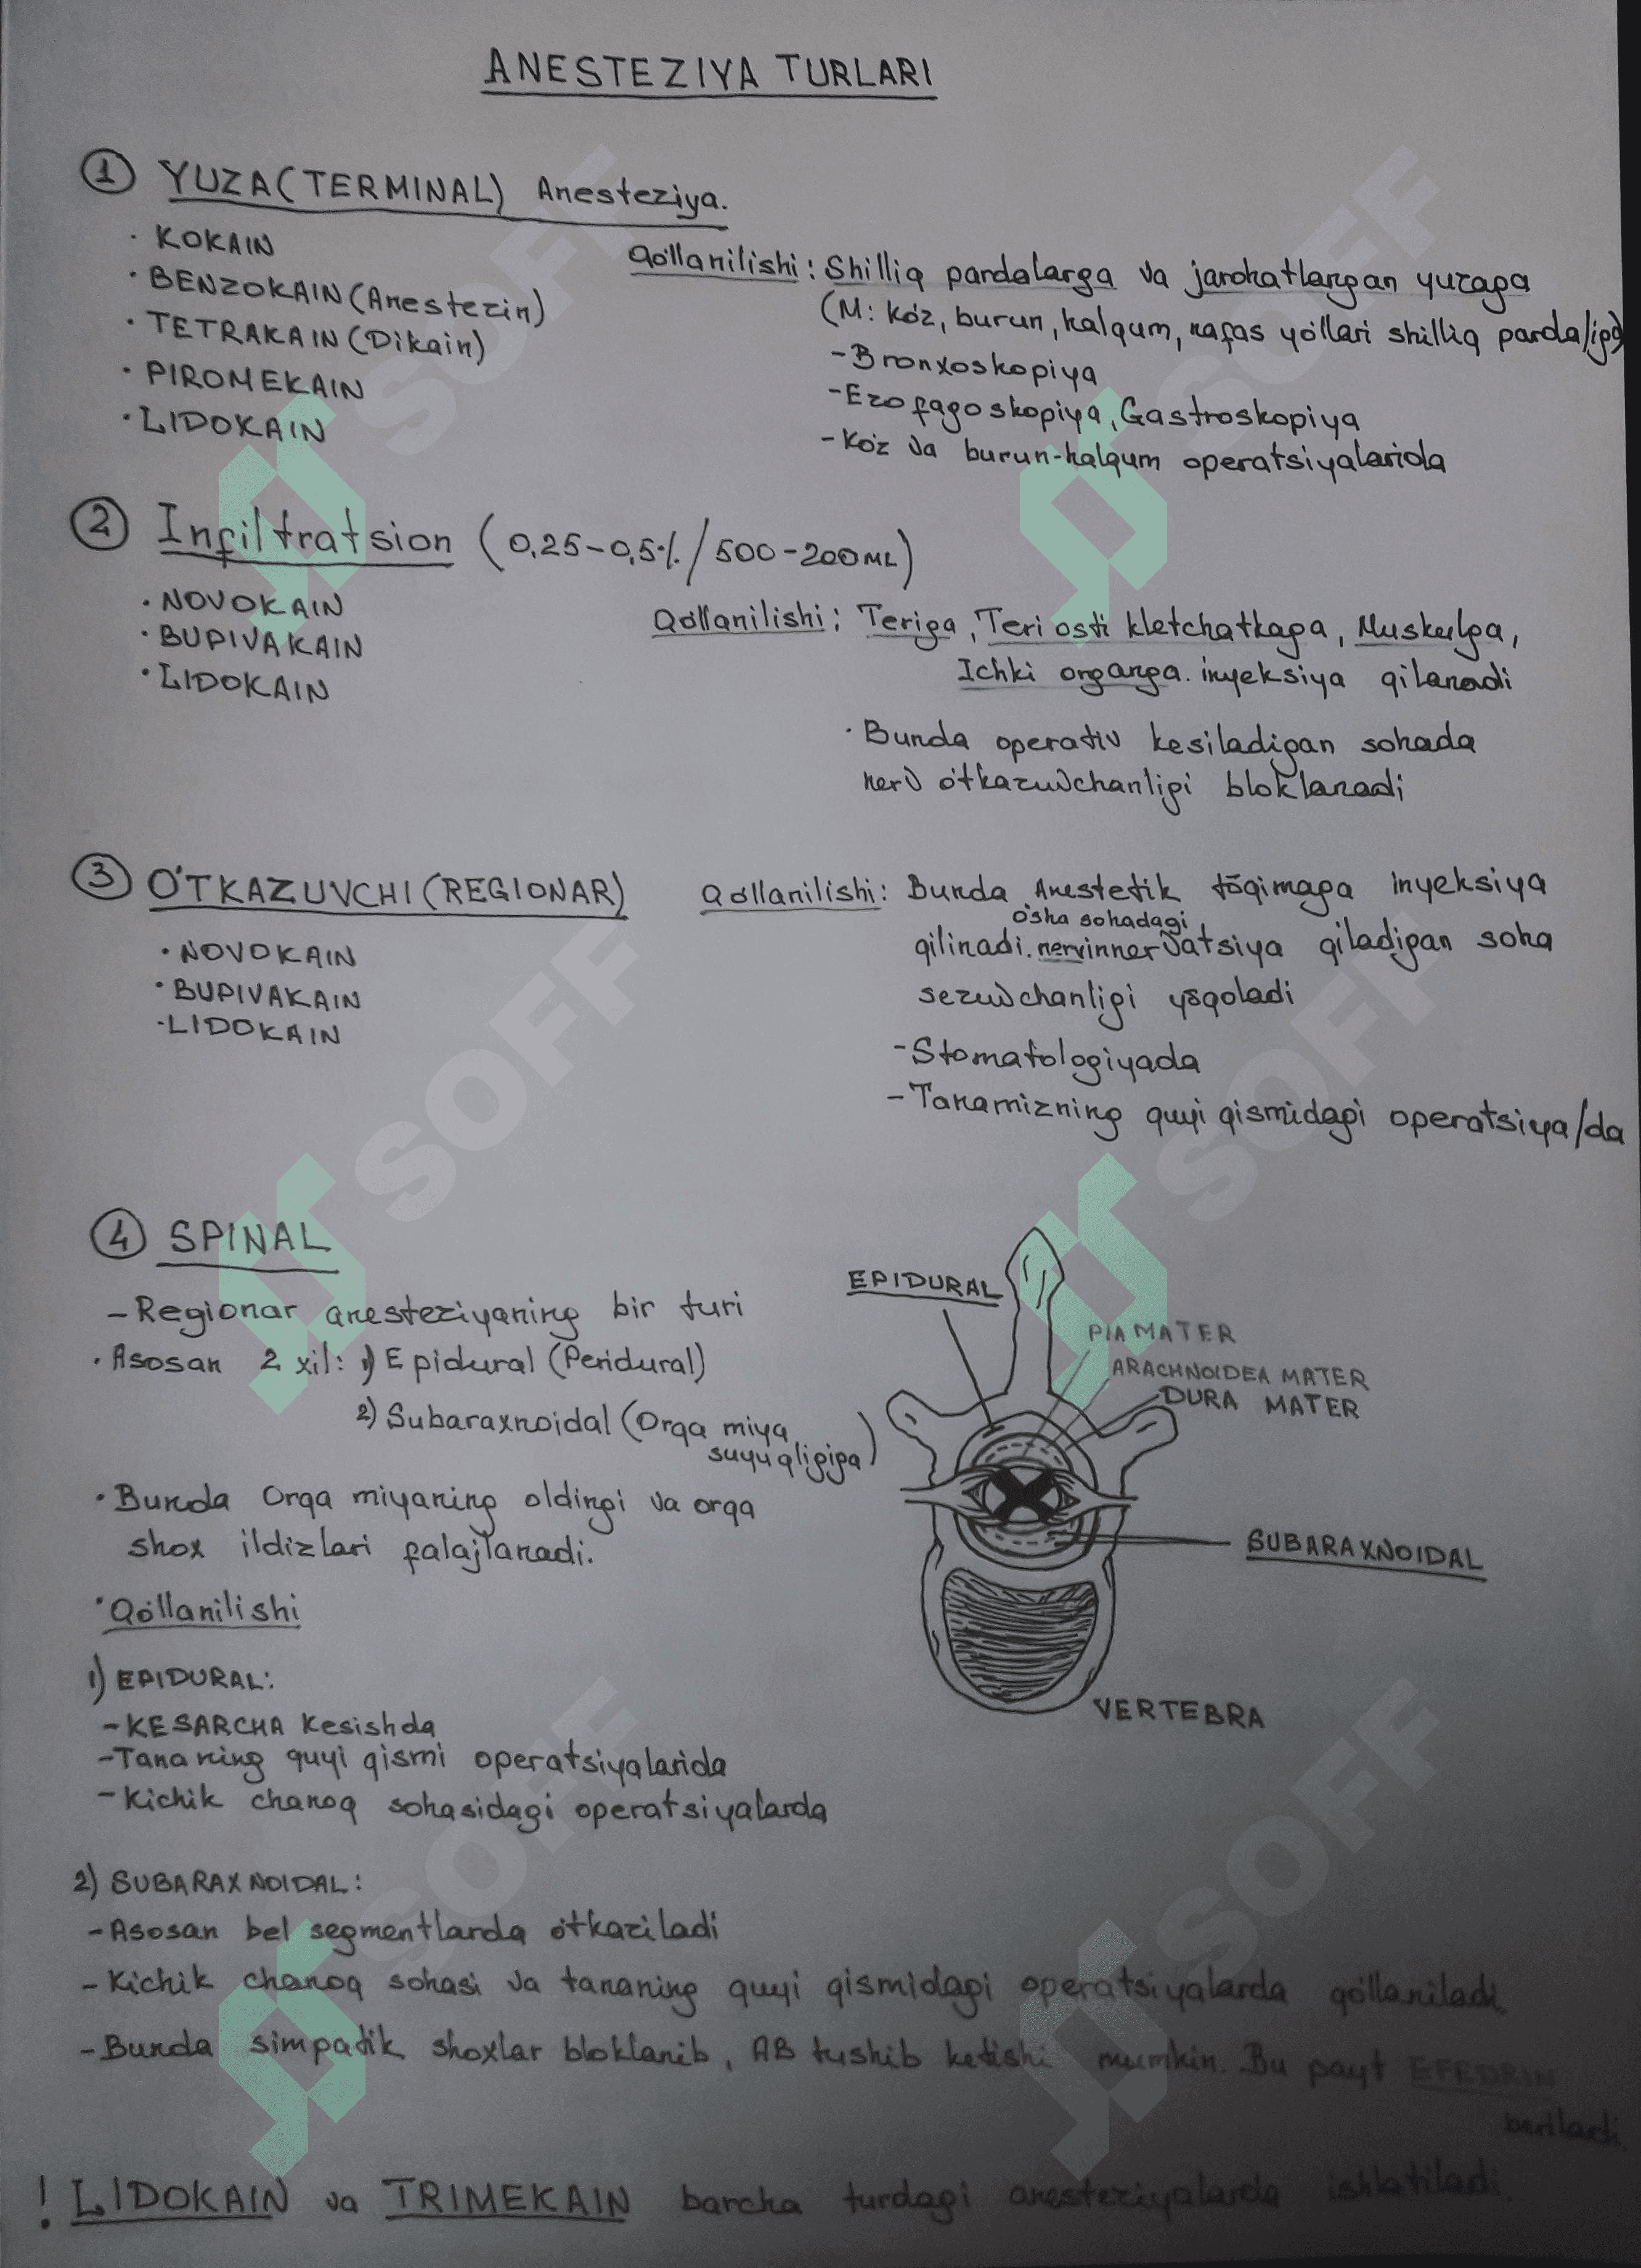 ANESTEZIYA TURLARI
① YUZA(TERMINAL) Anesteziya.
· KOKAIN
· BENZOKAIN(Anestezin)
· TETRAKAIN(Dikain)
· PIROMEKAIN
· LIDOKAIN
Qo'llanilishi: Shilliq pardalarga va jarohatlangan yuzaga
(M: ko'z, burun, halqum, nafas yo'llari shilliq parda/iga)
- Bronxoskopiya
- Ezofagoskopiya, Gastroskopiya
- Ko'z va burun-halqum operatsiyalarida
② Infiltratsion (0,25-0,5%/500-200ML)
· NOVOKAIN
· BUPIVAKAIN
· LIDOKAIN
Qo'llanilishi: Teriga, Teri osti kletchatkaga, Muskulga,
Ichki organga. inyeksiya qilanadi
· Bunda operativ kesiladigan sohada
nerv o'tkazuvchanligi bloklanadi
③ O'TKAZUVCHI(REGIONAR)
· NOVOKAIN
· BUPIVAKAIN
· LIDOKAIN
Qo'llanilishi: Bunda Anestetik to'qimaga inyeksiya
o'sha sohadagi
qilinadi. nerv innervatsiya qiladigan soha
sezuvchanligi yo'qoladi
- Stomatologiyada
- Tanamizning quyi qismidagi operatsiya/da
④ SPINAL
- Regionar anesteziyaning bir turi
· Asosan 2 xil: 1) Epidural (Peridural)
2) Subaraxnoidal (Orqa miya
suyuqligiga)
· Bunda Orqa miyaning oldingi va orqa
shox ildizlari falajlanadi.
· Qo'llanilishi
1) EPIDURAL:
- KESARCHA Kesishda
- Tananing quyi qismi operatsiyalarida
- Kichik chanoq sohasidagi operatsiyalarda
EPIDURAL
PIA MATER
ARACHNOIDEA MATER
DURA MATER
SUBARAXNOIDAL
VERTEBRA
2) SUBARAXNOIDAL:
- Asosan bel segmentlarda o'tkaziladi
- Kichik chanoq sohasi va tananing quyi qismidagi operatsiyalarda qo'llaniladi.
- Bunda simpatik shoxlar bloklanib, AB tushib ketishi mumkin. Bu payt EFEDRIN
beriladi
! LIDOKAIN va TRIMEKAIN barcha turdagi anesteziyalarda ishlatiladi.
SOFF
SOFF
SOFF
SOFF
SOFF
SOFF